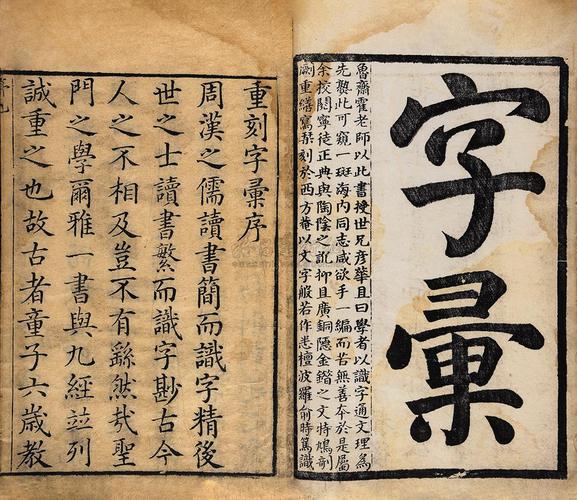 字彙
魯齋霍老師以此書授世兄彥華且曰學者以識字通文理為
先槩此可窺一斑海內同志咸欲手一編而苦無善本於是屬
余校閱寧徒正典與陶陰之訛抑且廣銅隱金鍇之文特鳩剞
劂重繕寫栞刻於西方菴以文字般若作悉檀波羅俞時篤識
重刻字彙序
周漢之儒讀書簡而識字精後
世之士讀書繁而識字尠古今
人之不相及豈不有繇然㢤聖
門之學爾雅一書與九經竝列
誠重之也故古者童子六歲教